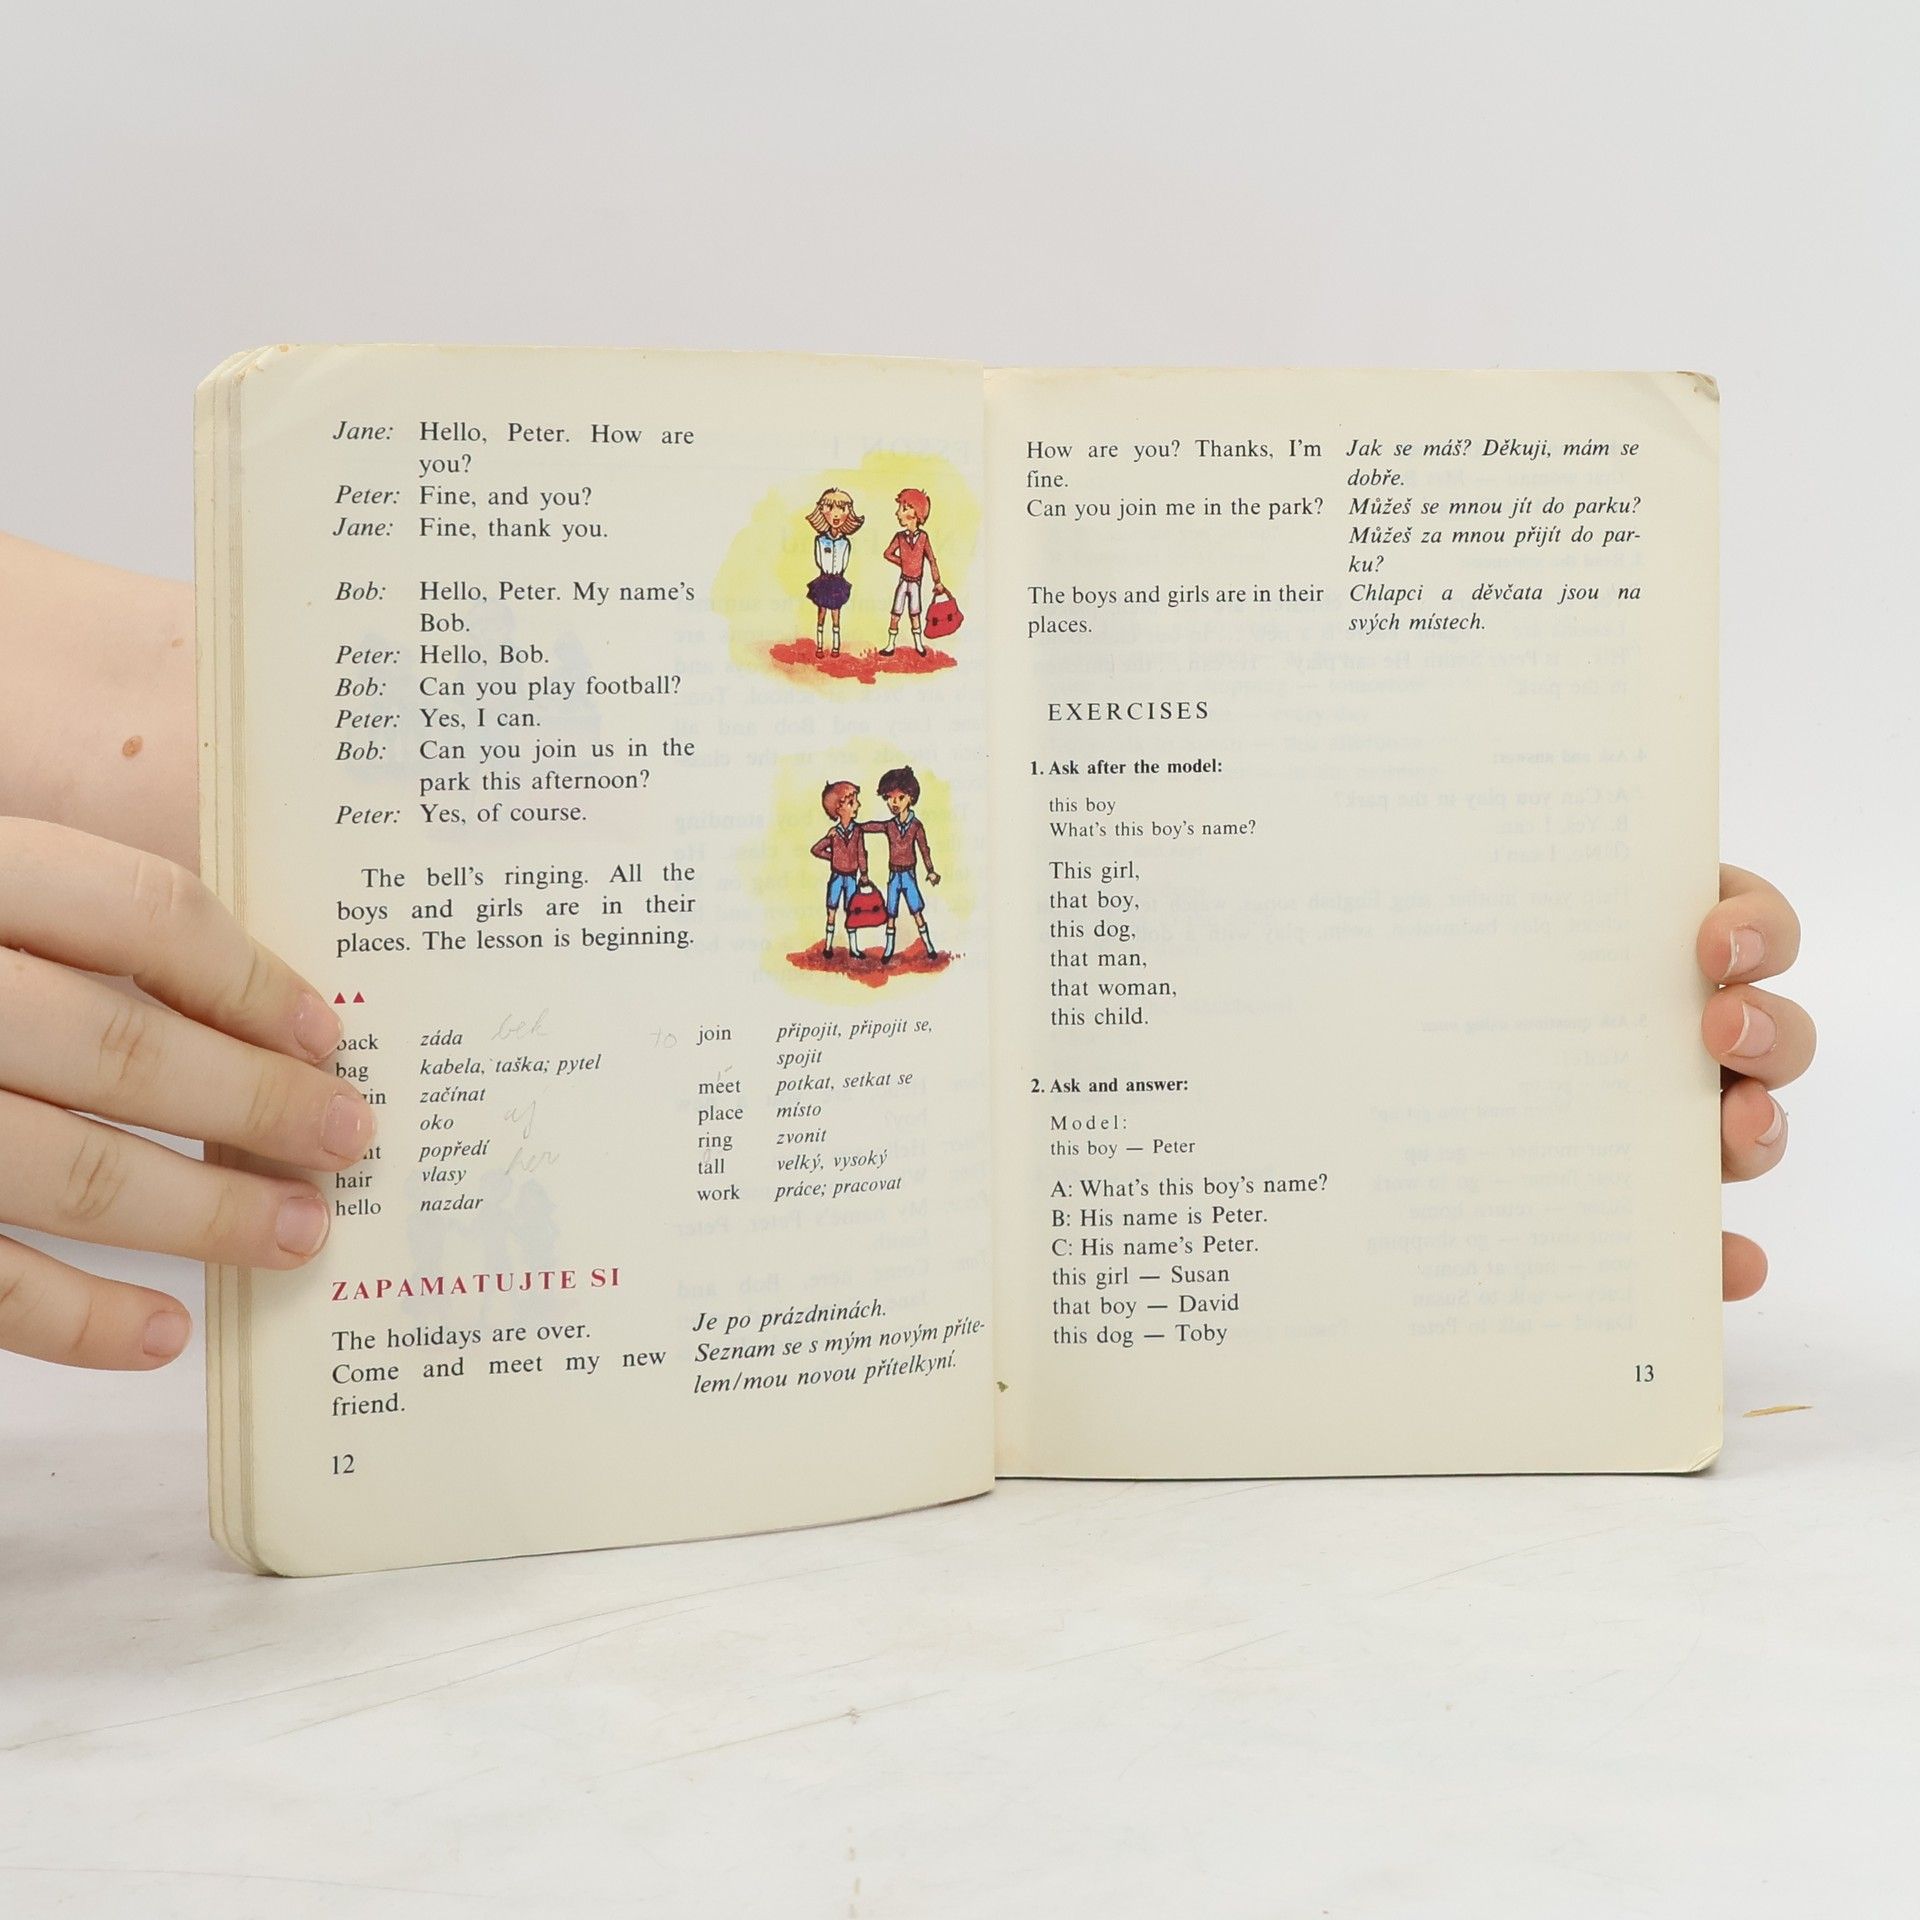 Jane: Hello, Peter. How are
you?
Peter: Fine, and you?
Jane: Fine, thank you.
Bob: Hello, Peter. My name's
Bob.
Peter: Hello, Bob.
Bob: Can you play football?
Peter: Yes, I can.
Bob: Can you join us in the
park this afternoon?
Peter: Yes, of course.
The bell's ringing. All the
boys and girls are in their
places. The lesson is beginning.
back záda bek
bag kabela, taška; pytel
začínat
oko aj
popředí
hair vlasy her
hello nazdar
to join připojit, připojit se,
spojit
meet potkat, setkat se
place místo
ring zvonit
tall velký, vysoký
work práce; pracovat
ZAPAMATUJTE SI
The holidays are over. Je po prázdninách.
Come and meet my new Seznam se s mým novým příte-
friend. lem/mou novou přítelkyní.
12
How are you? Thanks, I'm Jak se máš? Děkuji, mám se
fine. dobře.
Can you join me in the park? Můžeš se mnou jít do parku?
Můžeš za mnou přijít do par-
ku?
The boys and girls are in their Chlapci a děvčata jsou na
places. svých místech.
EXERCISES
1. Ask after the model:
this boy
What's this boy's name?
This girl,
that boy,
this dog,
that man,
that woman,
this child.
2. Ask and answer:
Model:
this boy — Peter
A: What's this boy's name?
B: His name is Peter.
C: His name's Peter.
this girl — Susan
that boy — David
this dog — Toby
13